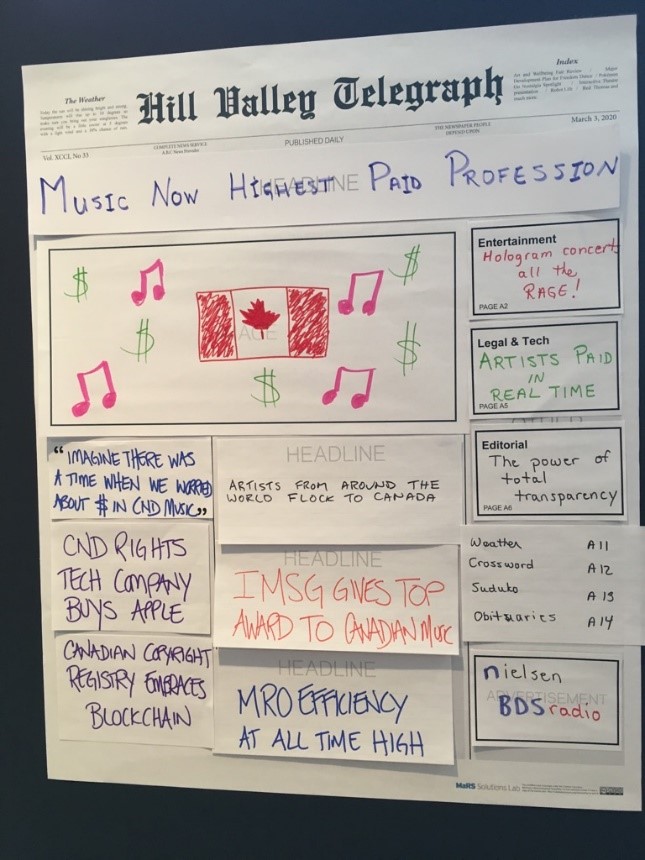 The Weather
Hill Valley Telegraph
Index
Vol. XCCI, No 33
COMPLETE NEWS SERVICE
PUBLISHED DAILY
THE NEWSPAPER PEOPLE
DEPEND UPON
March 3, 2020
HEADLINE
Music Now Highest Paid Profession
$ $ $ $ $
Entertainment
Hologram concerts
all the
RAGE!
PAGE A2
Legal & Tech
ARTISTS PAID
IN
REAL TIME
PAGE A5
Editorial
The power of
total
transparency
PAGE A6
Weather A11
Crossword A12
Suduko A13
Obituaries A14
ADVERTISEMENT
nielsen
BDSradio
"IMAGINE THERE WAS
A TIME WHEN WE WORRIED
ABOUT $ IN CND MUSIC"
CND RIGHTS
TECH COMPANY
BUYS APPLE
CANADIAN COPYRIGHT
REGISTRY EMBRACES
BLOCKCHAIN
HEADLINE
ARTISTS FROM AROUND THE
WORLD FLOCK TO CANADA
HEADLINE
IMSG GIVES TOP
AWARD TO CANADIAN MUSIC
HEADLINE
MRO EFFICIENCY
AT ALL TIME HIGH
MaRS Solutions Lab